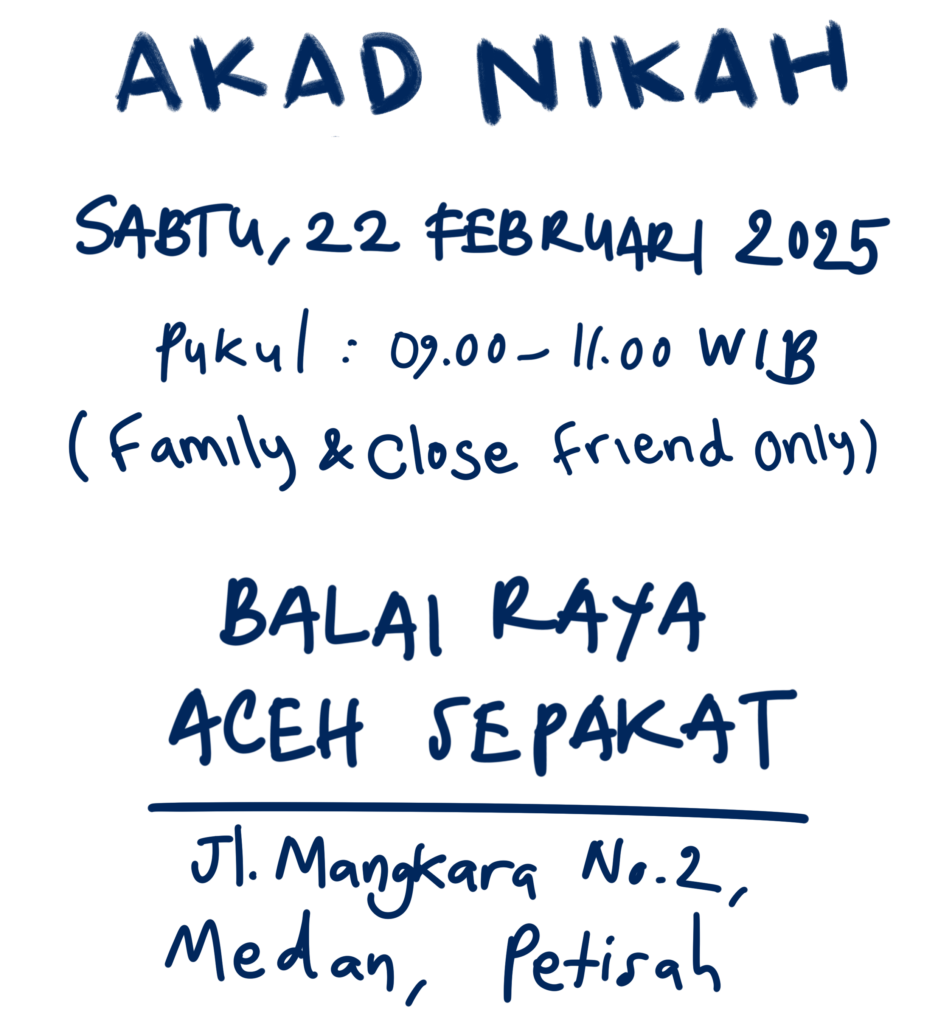 AKAD NIKAH
SABTU, 22 FEBRUARI 2025
Pukul : 09.00 - 11.00 WIB
(Family & Close friend only)
BALAI RAYA
ACEH SEPAKAT
Jl. Mangkara No.2,
Medan, Petisah